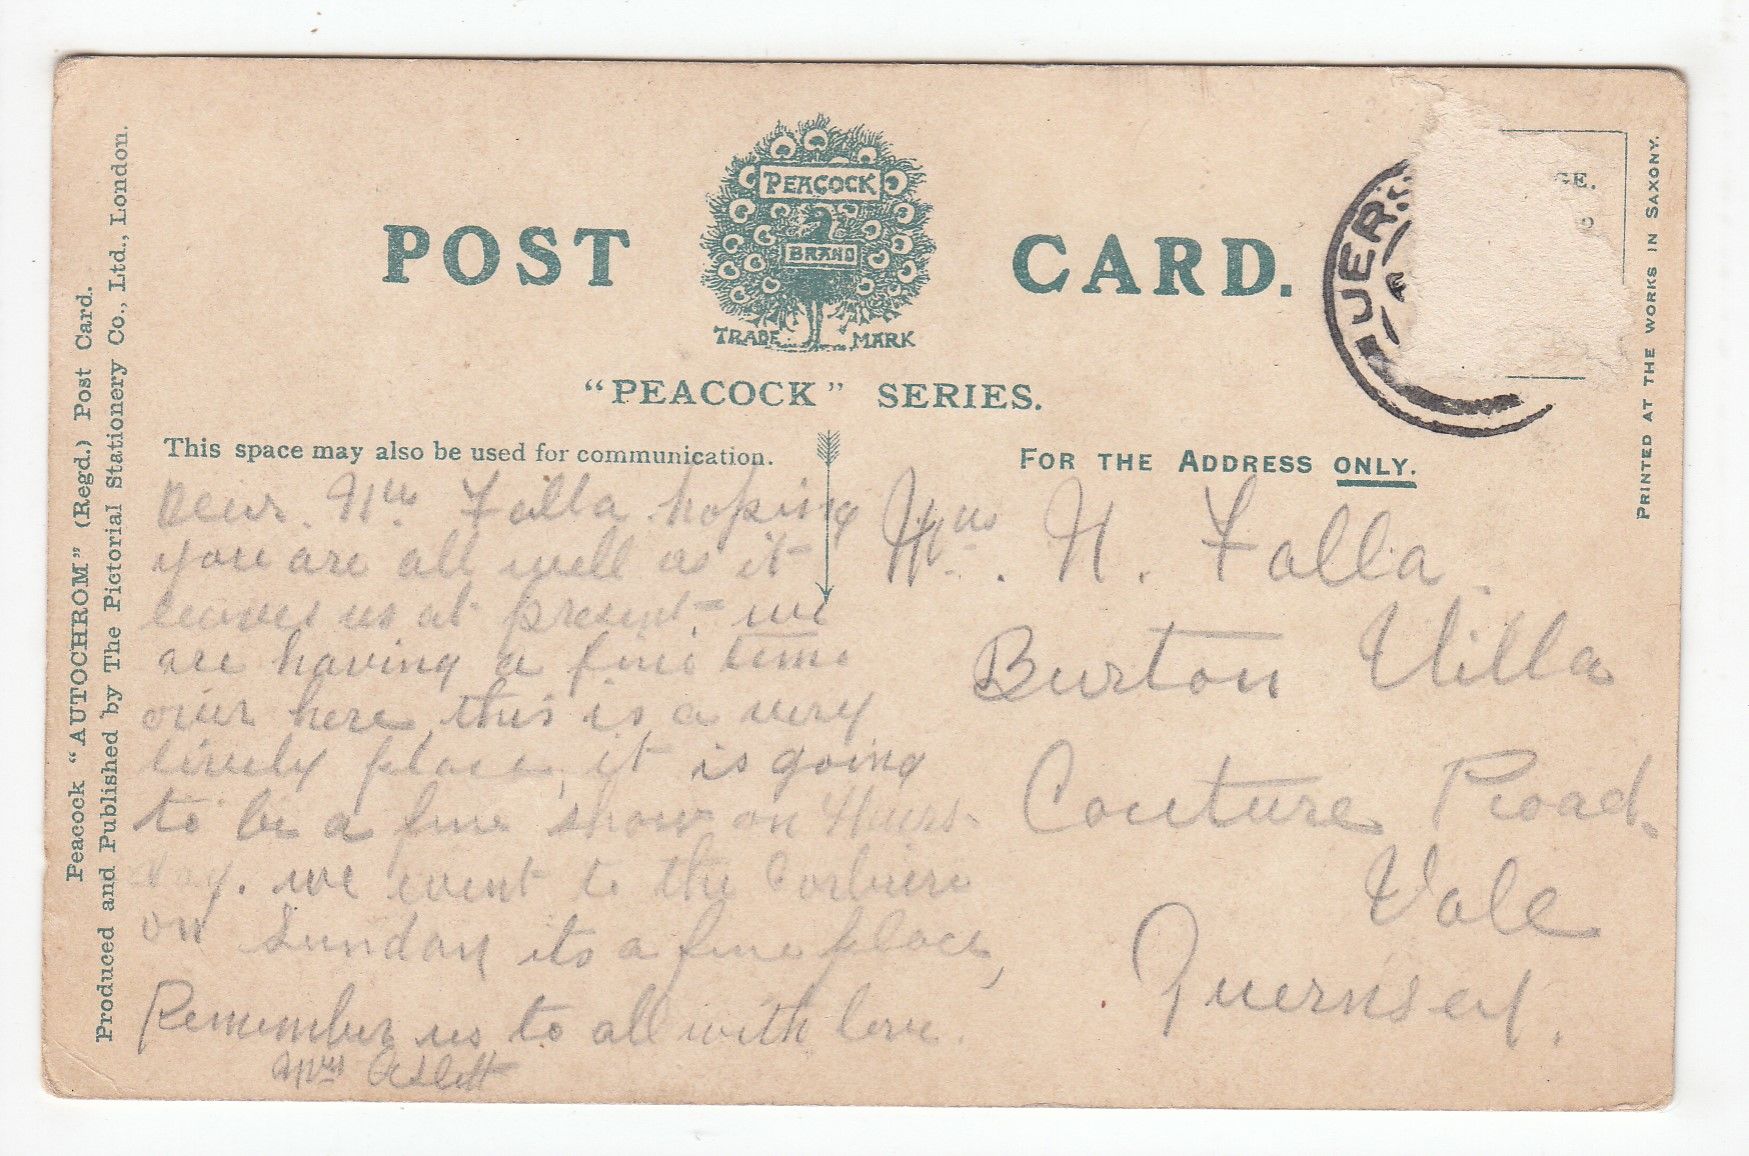 POST CARD.
PEACOCK
BRAND
TRADE MARK
"PEACOCK" SERIES.
This space may also be used for communication.
FOR THE ADDRESS ONLY.
Peacock "AUTOCHROM" (Regd.) Post Card.
Produced and Published by The Pictorial Stationery Co., Ltd., London.
PRINTED AT THE WORKS IN SAXONY.
GE.
GUERNS
Dear Mrs Falla hoping
you are all well as it
leaves us at present - we
are having a fine time
over here, this is a very
lively place, it is going
to be a fine show on Thurs-
day. we went to the Corbiere
on Sunday its a fine place,
Remember us to all with love.
Mrs
Mrs. N. Falla
Burton Villa
Couture Road.
Vale
Guernsey.